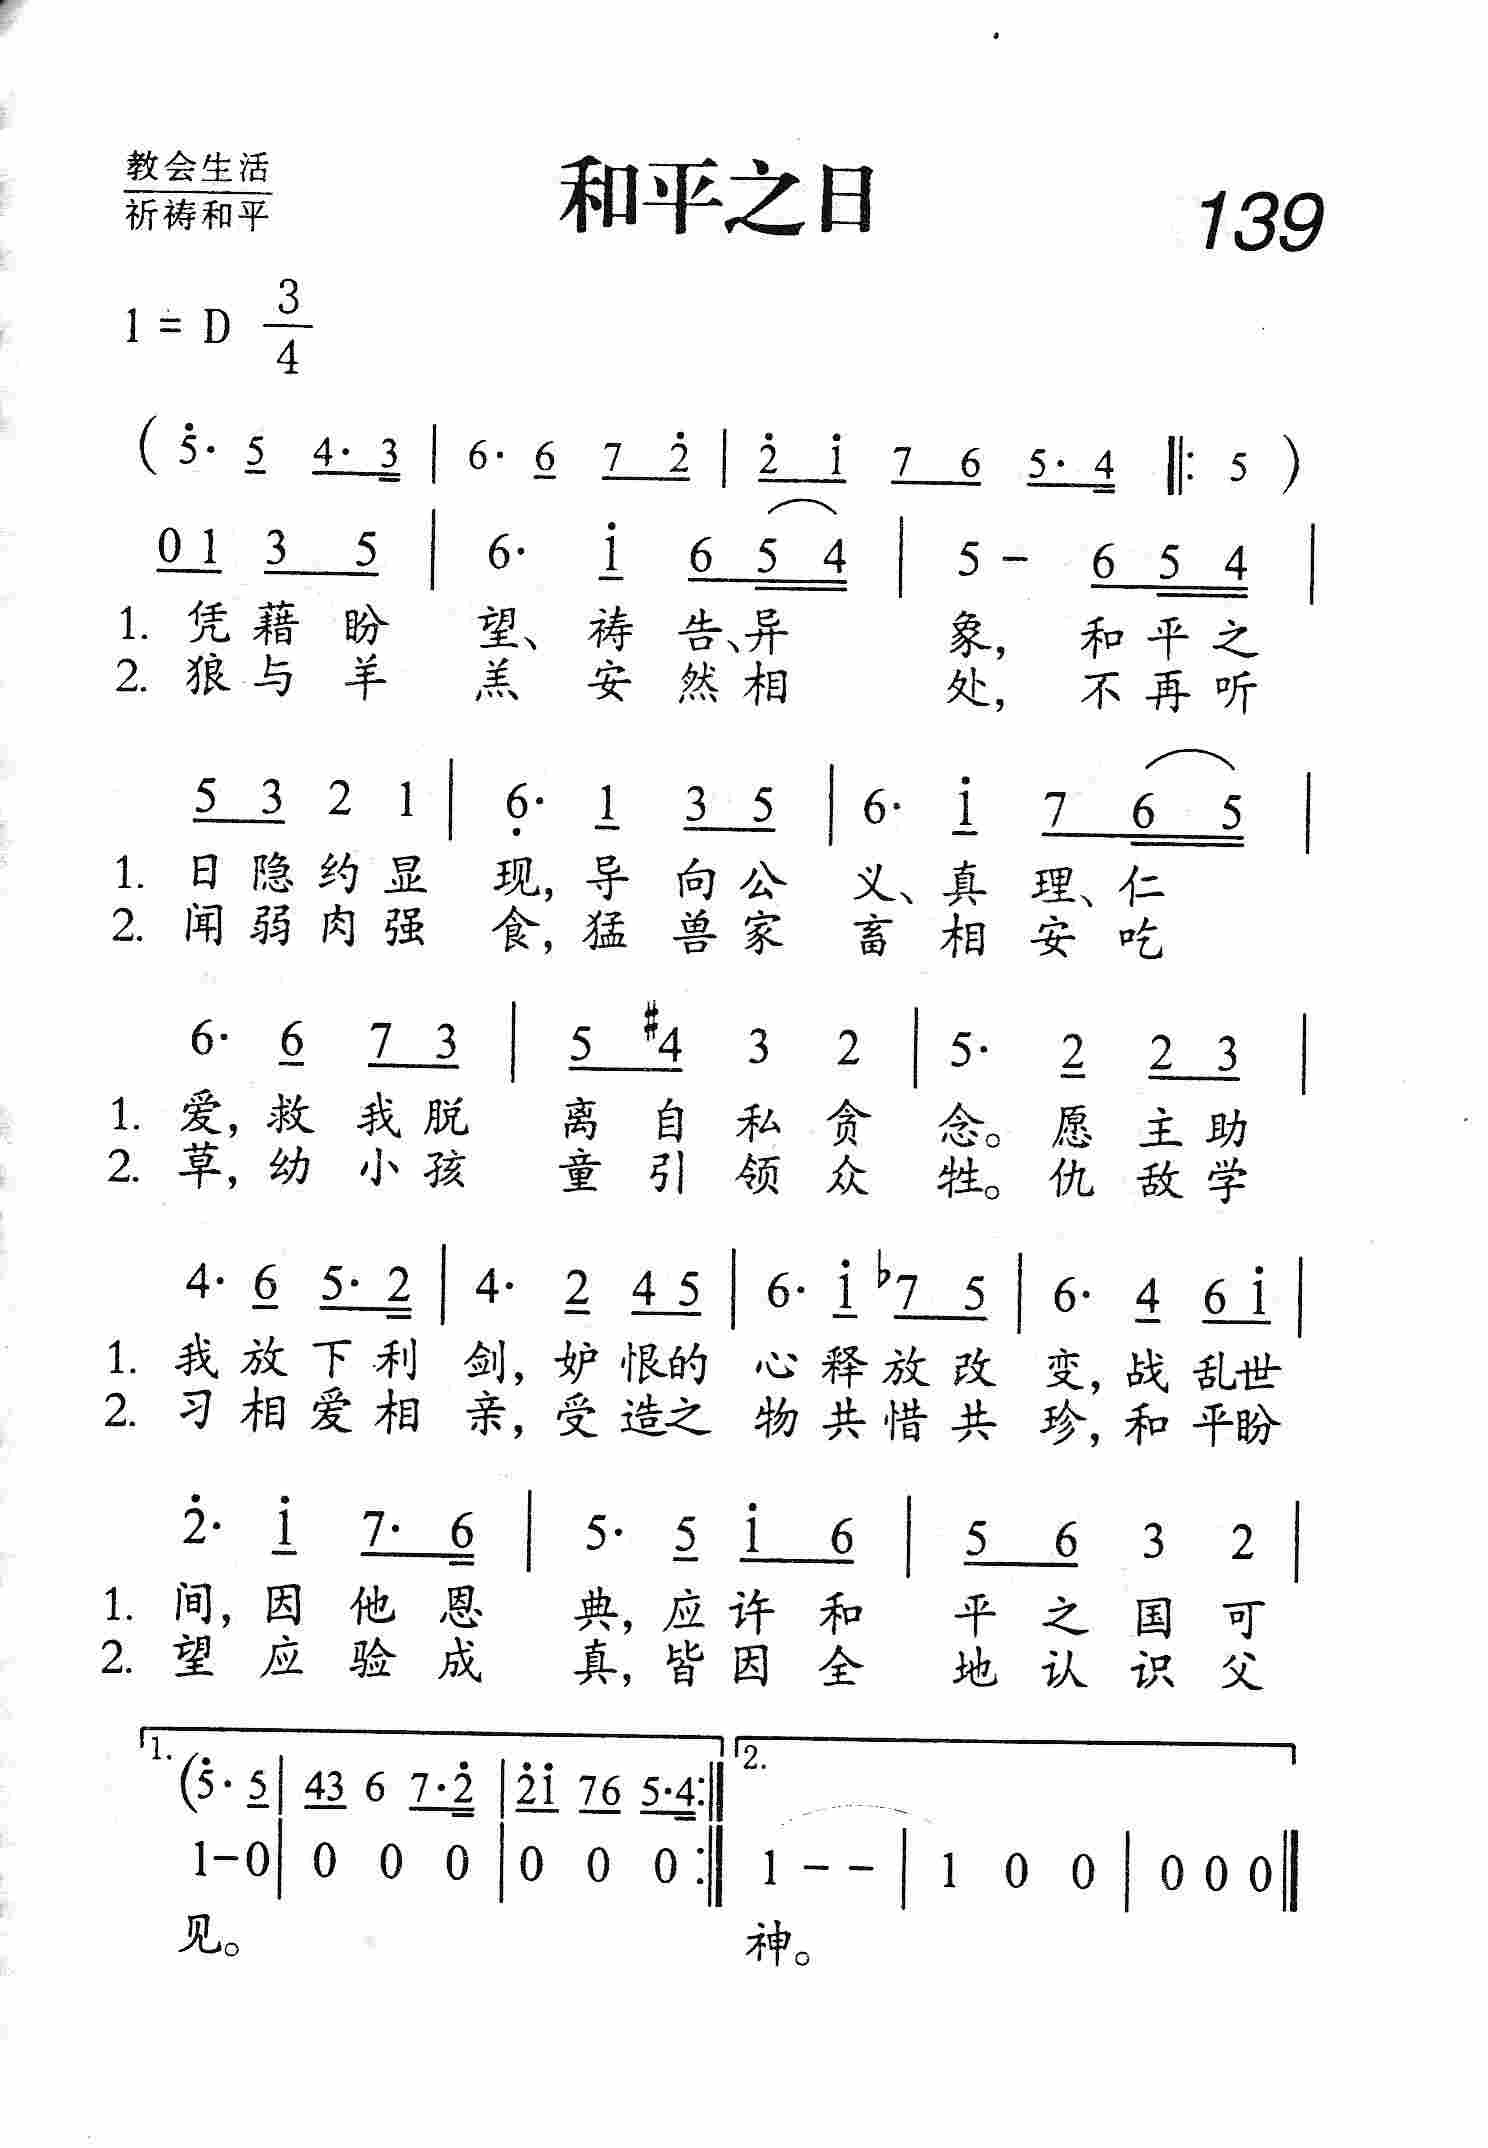 教会生活
祈祷和平
和平之日
139
1 = D 3/4
( 5̇· 5 4· 3 | 6· 6 7 2̇ | 2̇ i̇ 7 6 5· 4 ‖: 5 )
0 1 3 5 | 6· i̇ 6 5 4 | 5 – 6 5 4 |
1. 凭藉盼望、祷告、异象，和平之
2. 狼与羊羔安然相处，不再听
5 3 2 1 | 6̣· 1 3 5 | 6· i̇ 7 6 5 |
1. 日隐约显现，导向公义、真理、仁
2. 闻弱肉强食，猛兽家畜相安吃
6· 6 7 3 | 5 #4 3 2 | 5· 2 2 3 |
1. 爱，救我脱离自私贪念。愿主助
2. 草，幼小孩童引领众牲。仇敌学
4· 6 5· 2 | 4· 2 4 5 | 6· i̇ ♭7 5 | 6· 4 6 i̇ |
1. 我放下利剑，妒恨的心释放改变，战乱世
2. 习相爱相亲，受造之物共惜共珍，和平盼
2̇· i̇ 7· 6 | 5· 5 i̇ 6 | 5 6 3 2 |
1. 间，因他恩典，应许和平之国可
2. 望应验成真，皆因全地认识父
1. (5̇· 5 | 43 6 7· 2̇ | 2̇i̇ 76 5·4 :‖ 2.
1–0 | 0 0 0 | 0 0 0 :‖ 1 – – | 1 0 0 | 0 0 0 ‖
见。 神。